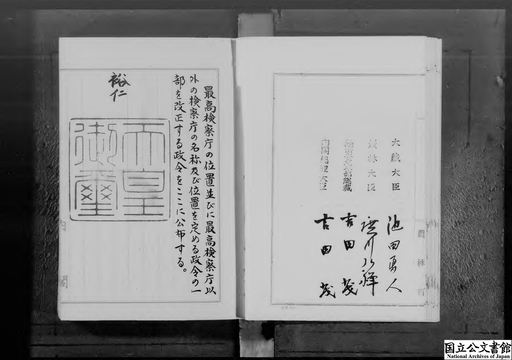 大蔵大臣
池田勇人
農林大臣
廣川弘禅
吉田茂
内閣総理大臣
吉田茂
最高検察庁の位置並びに最高検察庁以
外の検察庁の名称及び位置を定める政令の一
部を改正する政令をここに公布する。
裕仁
天皇
御璽
国立公文書館
National Archives of Japan